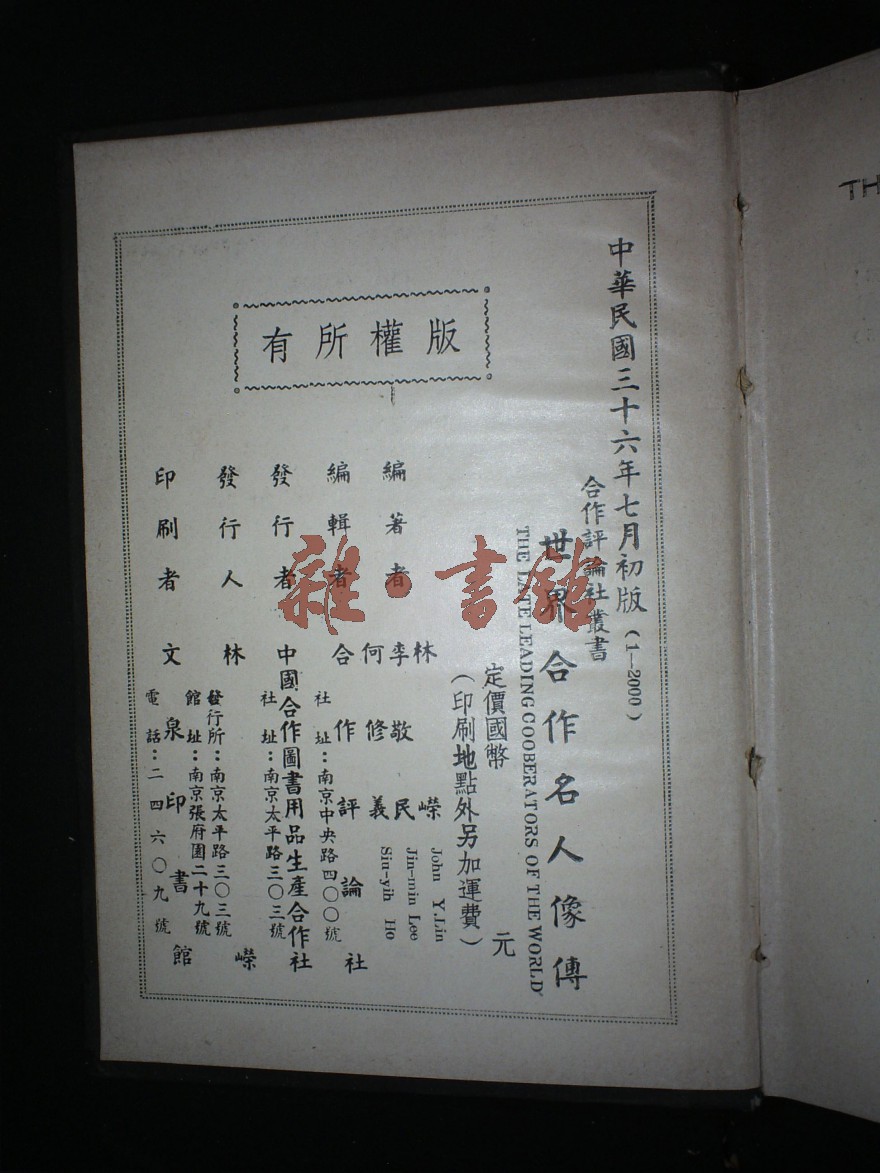 中華民國三十六年七月初版(1—2000)
合作評論社叢書
世界合作名人像傳
THE LATE LEADING COOBERATORS OF THE WORLD
定價國幣 元
(印刷地點外另加運費)
版權所有
編著者 林嶸 John Y. Lin
李敬民 Jin-min Lee
何修義 Sin-yih Ho
編輯者 合作評論社
社址:南京中央路四〇〇號
發行者 中國合作圖書用品生產合作社
社址:南京太平路三〇三號
發行人 林嶸
發行所:南京太平路三〇三號
館址:南京張府園二十九號
印刷者 文泉印書館
電話:二四六〇九號
雜·書館
TH